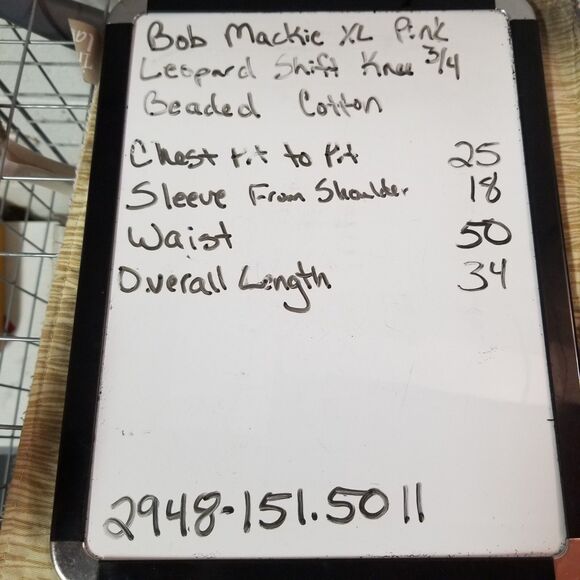 Bob Mackie XL Pink
Leopard Shift Knee 3/4
Beaded Cotton
Chest Pit to Pit 25
Sleeve From Shoulder 18
Waist 50
Overall Length 34
2948-151.50 11